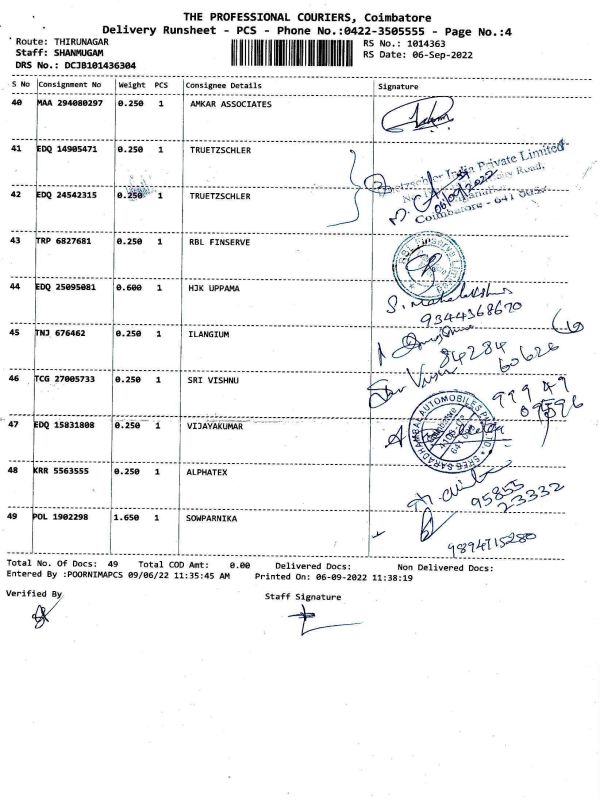 THE PROFESSIONAL COURIERS, Coimbatore
Delivery Runsheet - PCS - Phone No.:0422-3505555 - Page No.:4
Route: THIRUNAGAR
RS No.: 1014363
Staff: SHANMUGAM
RS Date: 06-Sep-2022
DRS No.: DCJB101436304
S No Consignment No Weight PCS Consignee Details Signature
40 MAA 294080297 0.250 1 AMKAR ASSOCIATES
41 EDQ 14905471 0.250 1 TRUETZSCHLER
Truetzschler India Private Limited
Road,
06/09/2022
Coimbatore - 641
42 EDQ 24542315 0.250 1 TRUETZSCHLER
43 TRP 6827681 0.250 1 RBL FINSERVE
RBL Finserve Limited
44 EDQ 25095081 0.600 1 HJK UPPAMA
9344368670
45 TNJ 676462 0.250 1 ILANGIUM
84284 60626
46 TCG 27005733 0.250 1 SRI VISHNU
99949
09596
47 EDQ 15831808 0.250 1 VIJAYAKUMAR
SREE SARADHAMBAL AUTOMOBILES PVT LTD
48 KRR 5563555 0.250 1 ALPHATEX
95855
23332
49 POL 1902298 1.650 1 SOWPARNIKA
9894715280
Total No. Of Docs: 49 Total COD Amt: 0.00 Delivered Docs: Non Delivered Docs:
Entered By :POORNIMAPCS 09/06/22 11:35:45 AM Printed On: 06-09-2022 11:38:19
Verified By
Staff Signature